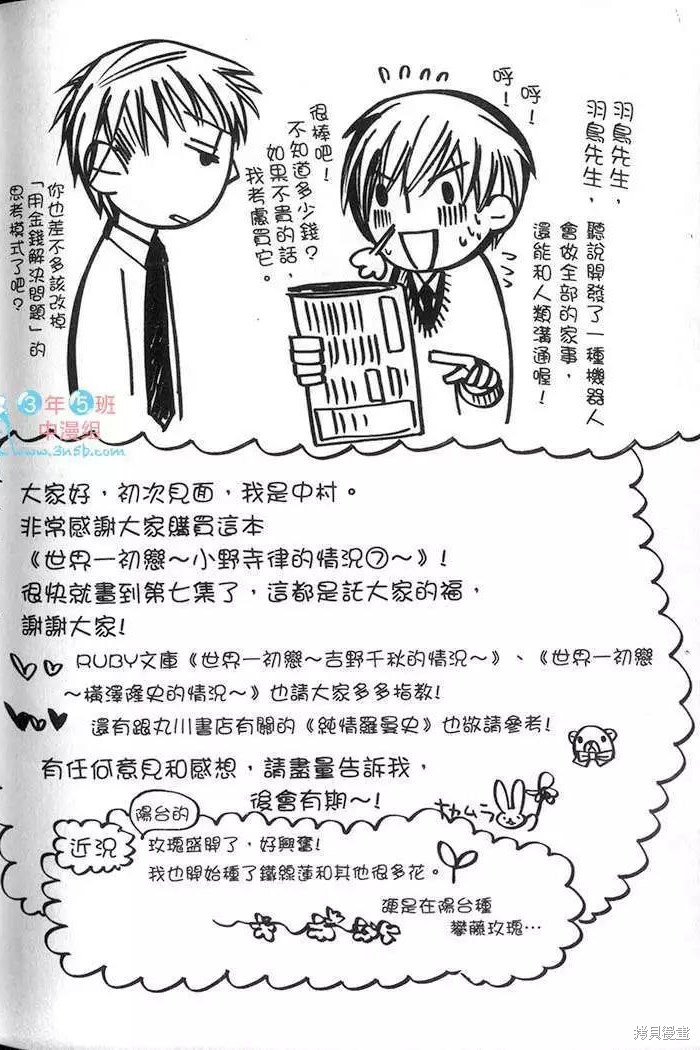 呼！
呼！
羽鳥先生，
羽鳥先生，
聽說開發了一種機器人
會做全部的家事，
還能和人類溝通喔！
很棒吧！
不知道多少錢？
如果不貴的話，
我考慮買它。
你也差不多該改掉
「用金錢解決問題」的
思考模式了吧？
3年5班
中漫組
www.3n5b.com
大家好，初次見面，我是中村。
非常感謝大家購買這本
《世界一初戀～小野寺律的情況⑦～》！
很快就畫到第七集了，這都是託大家的福，
謝謝大家！
RUBY文庫《世界一初戀～吉野千秋的情況～》、《世界一初戀
～橫澤隆史的情況～》也請大家多多指教！
還有跟丸川書店有關的《純情羅曼史》也敬請參考！
有任何意見和感想，請盡量告訴我，
後會有期～！
ナカムラ
陽台的
近況
玫瑰盛開了，好興奮！
我也開始種了鐵線蓮和其他很多花。
硬是在陽台種
攀藤玫瑰…
拷貝漫畫